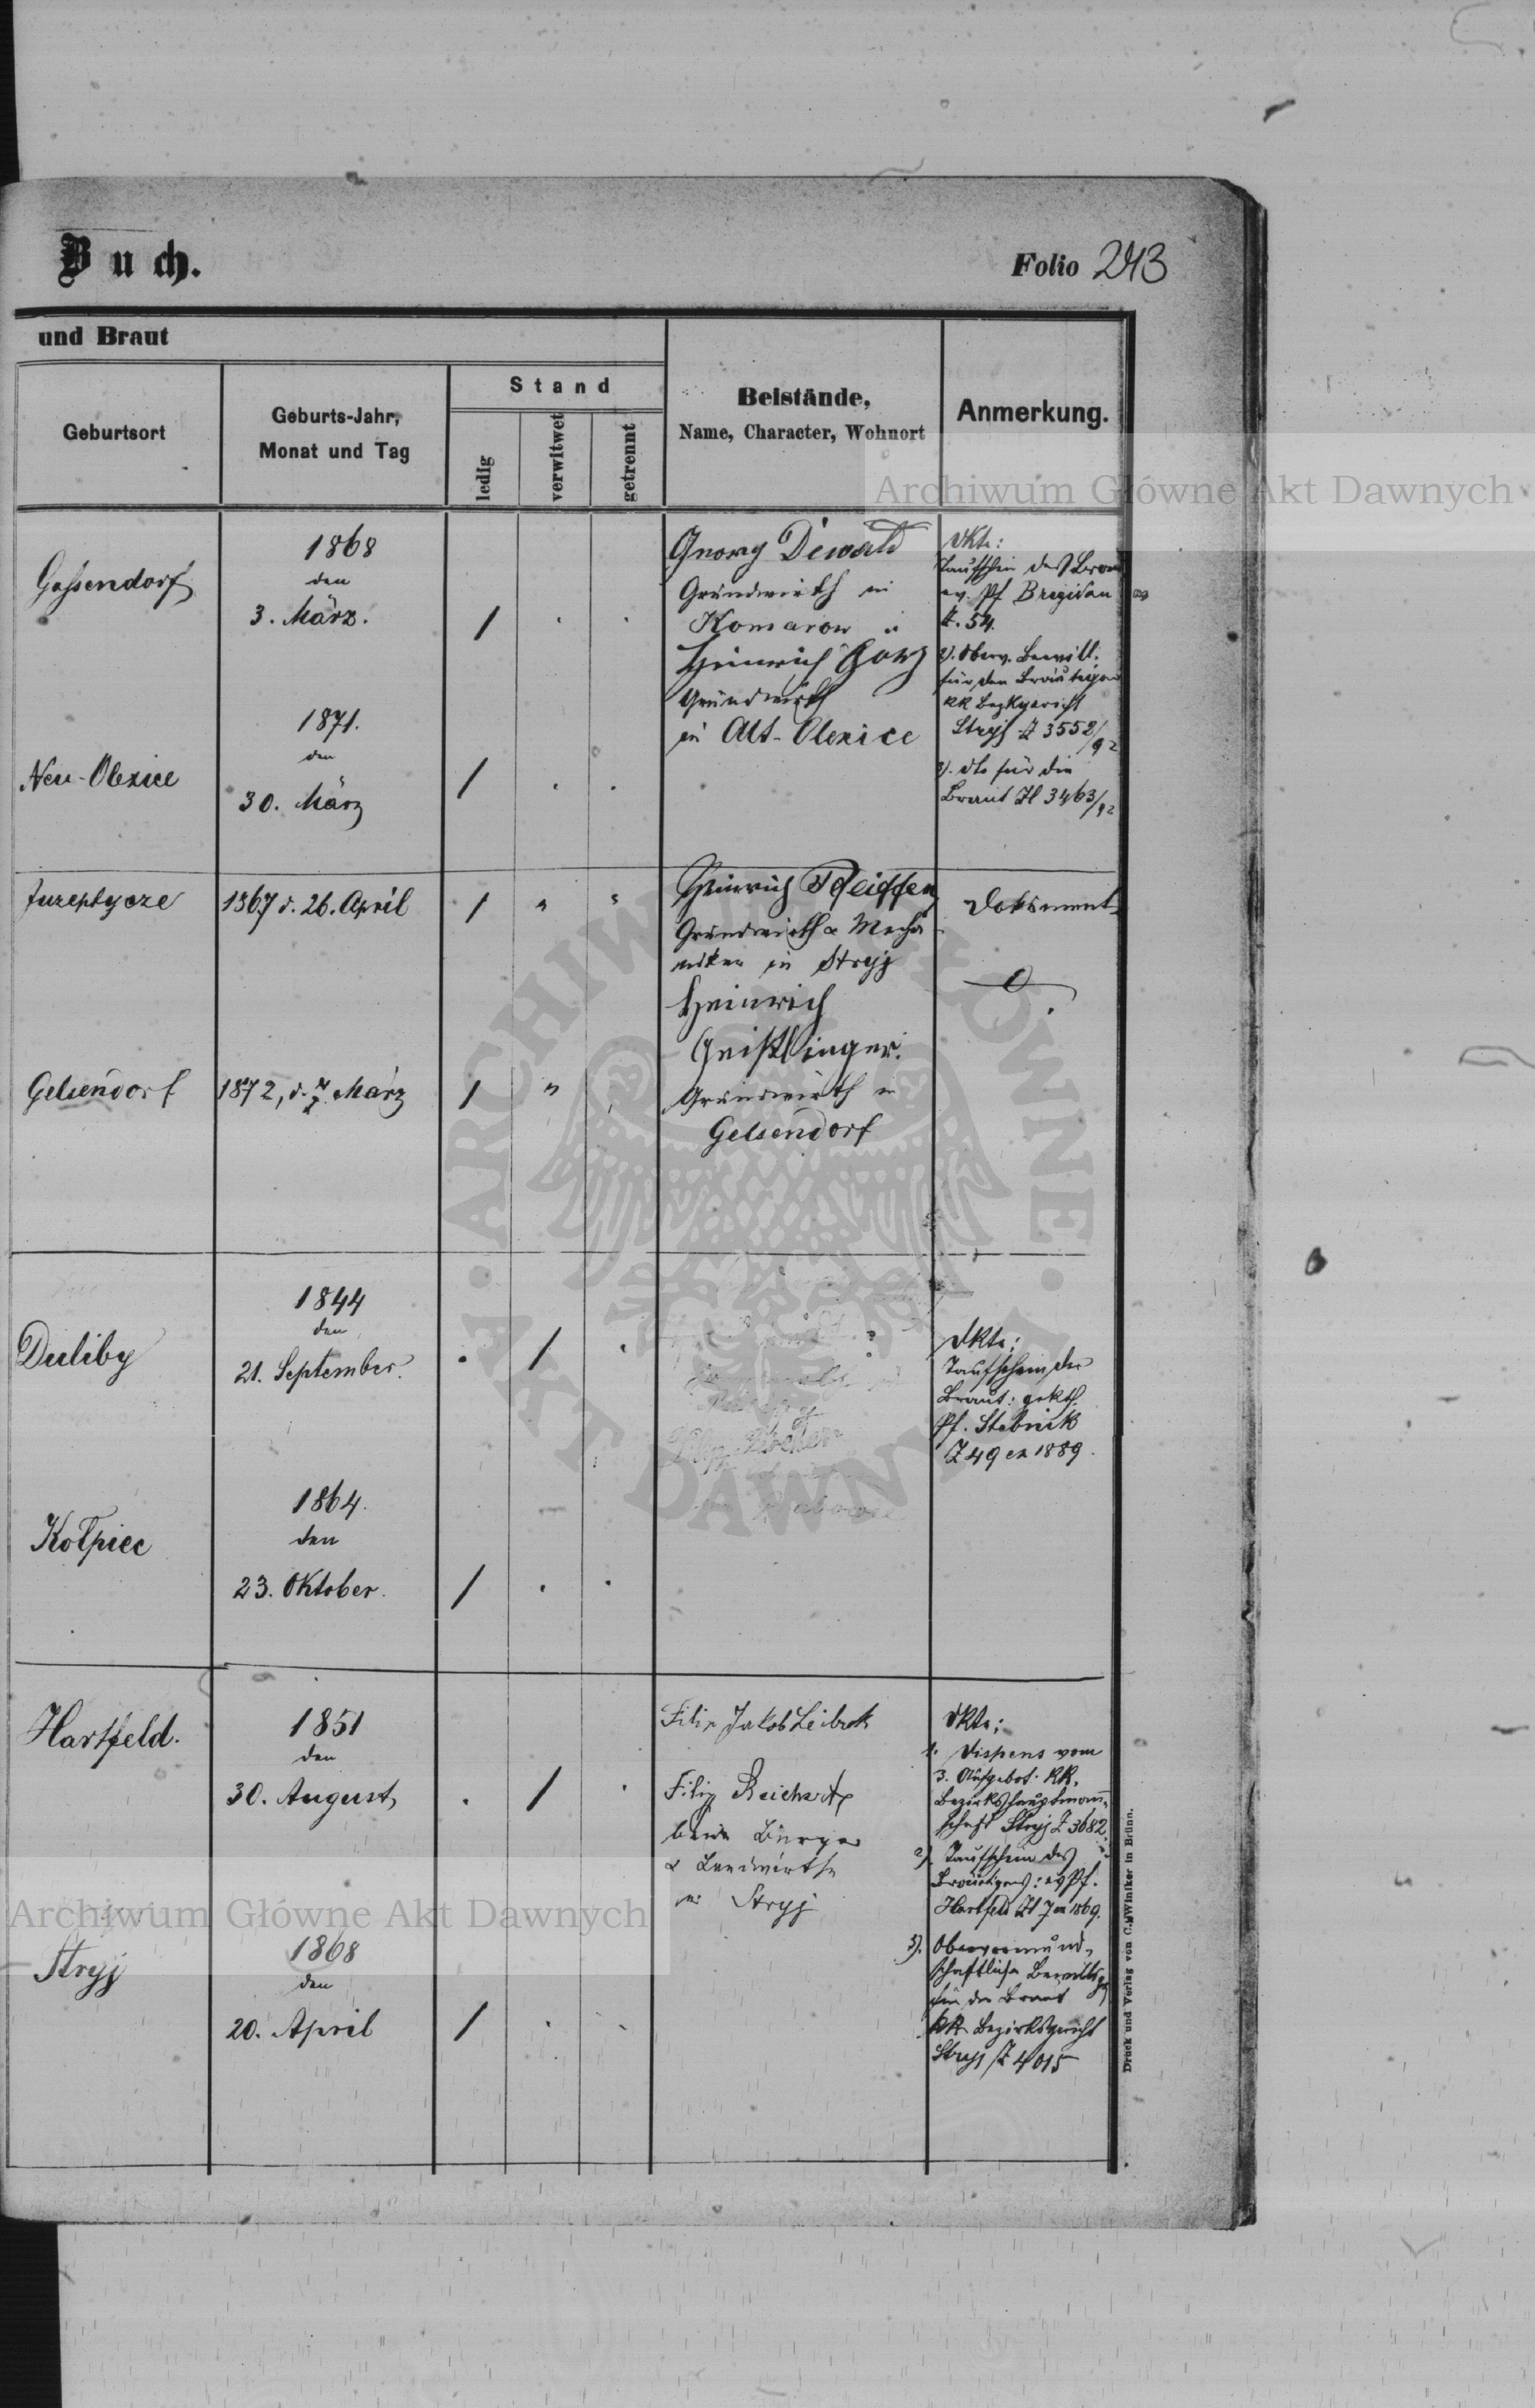 Buch.
Folio 243
und Braut
Geburtsort
Geburts-Jahr,
Monat und Tag
Stand
ledig
verwitwet
getrennt
Beistände,
Name, Character, Wohnort
Anmerkung.
Archiwum Główne Akt Dawnych
Gassendorf
1868
den
3. März.
/
Georg Dewald
Grundwirth in
Komarow
Heinrich
Grundwirth
in Alt-Olexice
Dkte:
Taufschein des
ev. Pf Brigidau
Z. 54.
2). Oberv. Bewill.
für den Bräutigam
KK Bezkgericht
Stryj Z 3552/92
3). dto für die
Braut Zl 3463/92
Neu-Olexice
1871.
den
30. März
/
1867 d. 26. April
/ " "
Heinrich Pfeiffer
Grundwirth & Mecha
niker in Stryj
Heinrich
Geistlinger.
Grundwirth in
Gelsendorf
Dokument
Gelsendorf
1872, d. März
/ "
Duliby
1844
den
21. September.
/
?
Dkte:
Taufschein der
Braut: gr kth.
Pf. Stebnik
Z 49 ex 1889.
Kołpiec
1864.
den
23. Oktober.
/
Hartfeld.
1851
den
30. August
/
Filip Jakob
Filip
beide Bürger
& Landwirthe
in Stryj
Dkte:
1. Dispens vom
3. Aufgebot. KK.
Bezirkshauptmann-
schaft Stryj Z 3682
2) Taufschein des
Bräutigams: ev Pf.
Hartfeld Zl 7 ex 1869.
3). Obervormund-
schaftliche Bewillig
für die Braut
KK Bezirksgericht
Stryj Z 4015
Archiwum Główne Akt Dawnych
Stryj
1868
den
20. April
/
Druck und Verlag von C. Winiker in Brünn.
ARCHIWUM GŁÓWNE AKT DAWNYCH